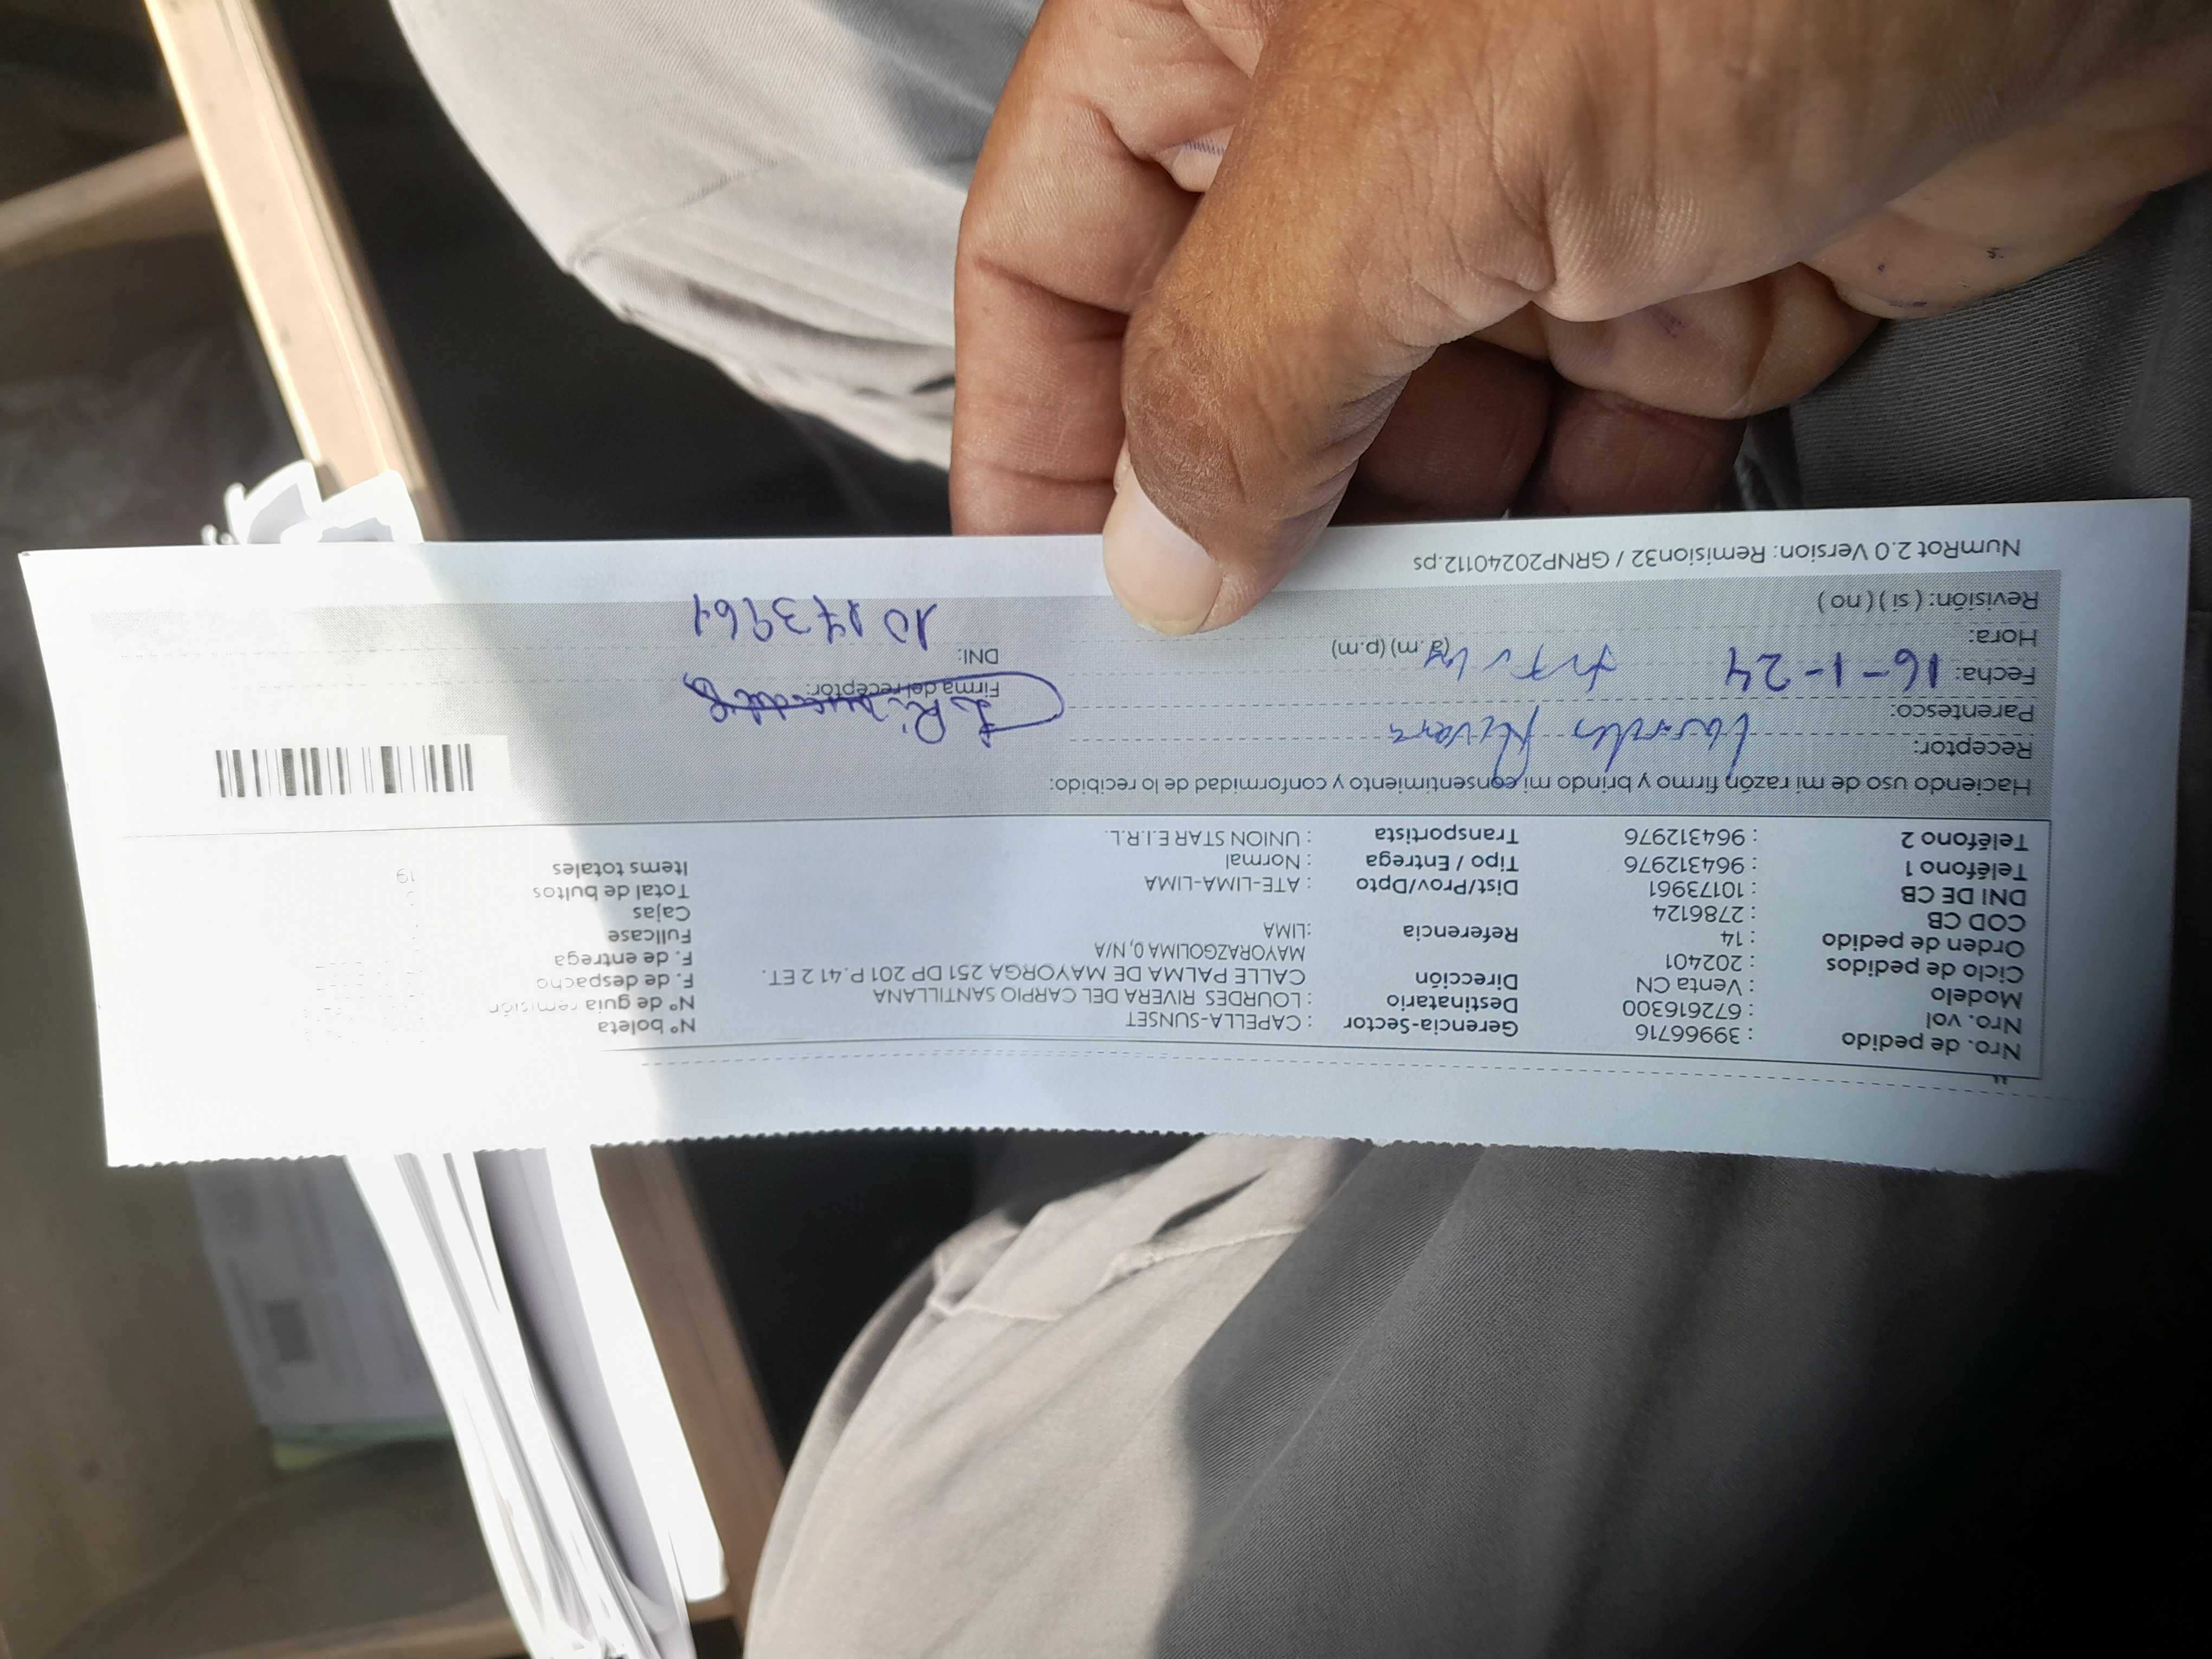 Nro. de pedido : 39966716 Gerencia-Sector : CAPELLA-SUNSET N° boleta
Nro. vol : 672616300 Destinatario : LOURDES RIVERA DEL CARPIO SANTILLANA N° de guia remisión
Modelo : Venta CN Dirección CALLE PALMA DE MAYORGA 251 DP 201 P.41 2 ET. F. de despacho
Ciclo de pedidos : 202401 MAYORAZGOLIMA 0, N/A F. de entrega
Orden de pedido : 14 Referencia :LIMA Fullcase
COD CB : 2786124 Cajas
DNI DE CB : 10173961 Dist/Prov/Dpto : ATE-LIMA-LIMA Total de bultos
Teléfono 1 : 964312976 Tipo / Entrega : Normal Items totales 19
Teléfono 2 : 964312976 Transportista : UNION STAR E.I.R.L.
Haciendo uso de mi razón firmo y brindo mi consentimiento y conformidad de lo recibido:
Receptor: Lourdes Rivera
Parentesco:
Firma del receptor:
Fecha: 16-1-24
DNI: 10173961
Hora: (a.m) (p.m)
Revisión: ( si ) ( no )
NumRot 2.0 Version: Remision32 / GRNP20240112.ps